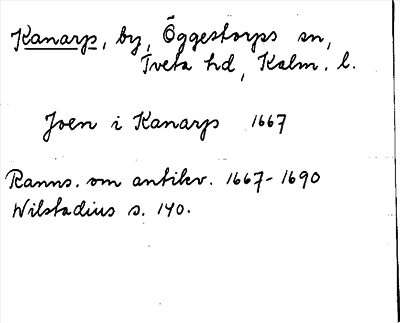 Kanarp, by, Öggestorps sn,
Tveta hd, Kalm. l.
Joen i Kanarp 1667
Ranns. om antikv. 1667-1690
Wilstadius s. 140.